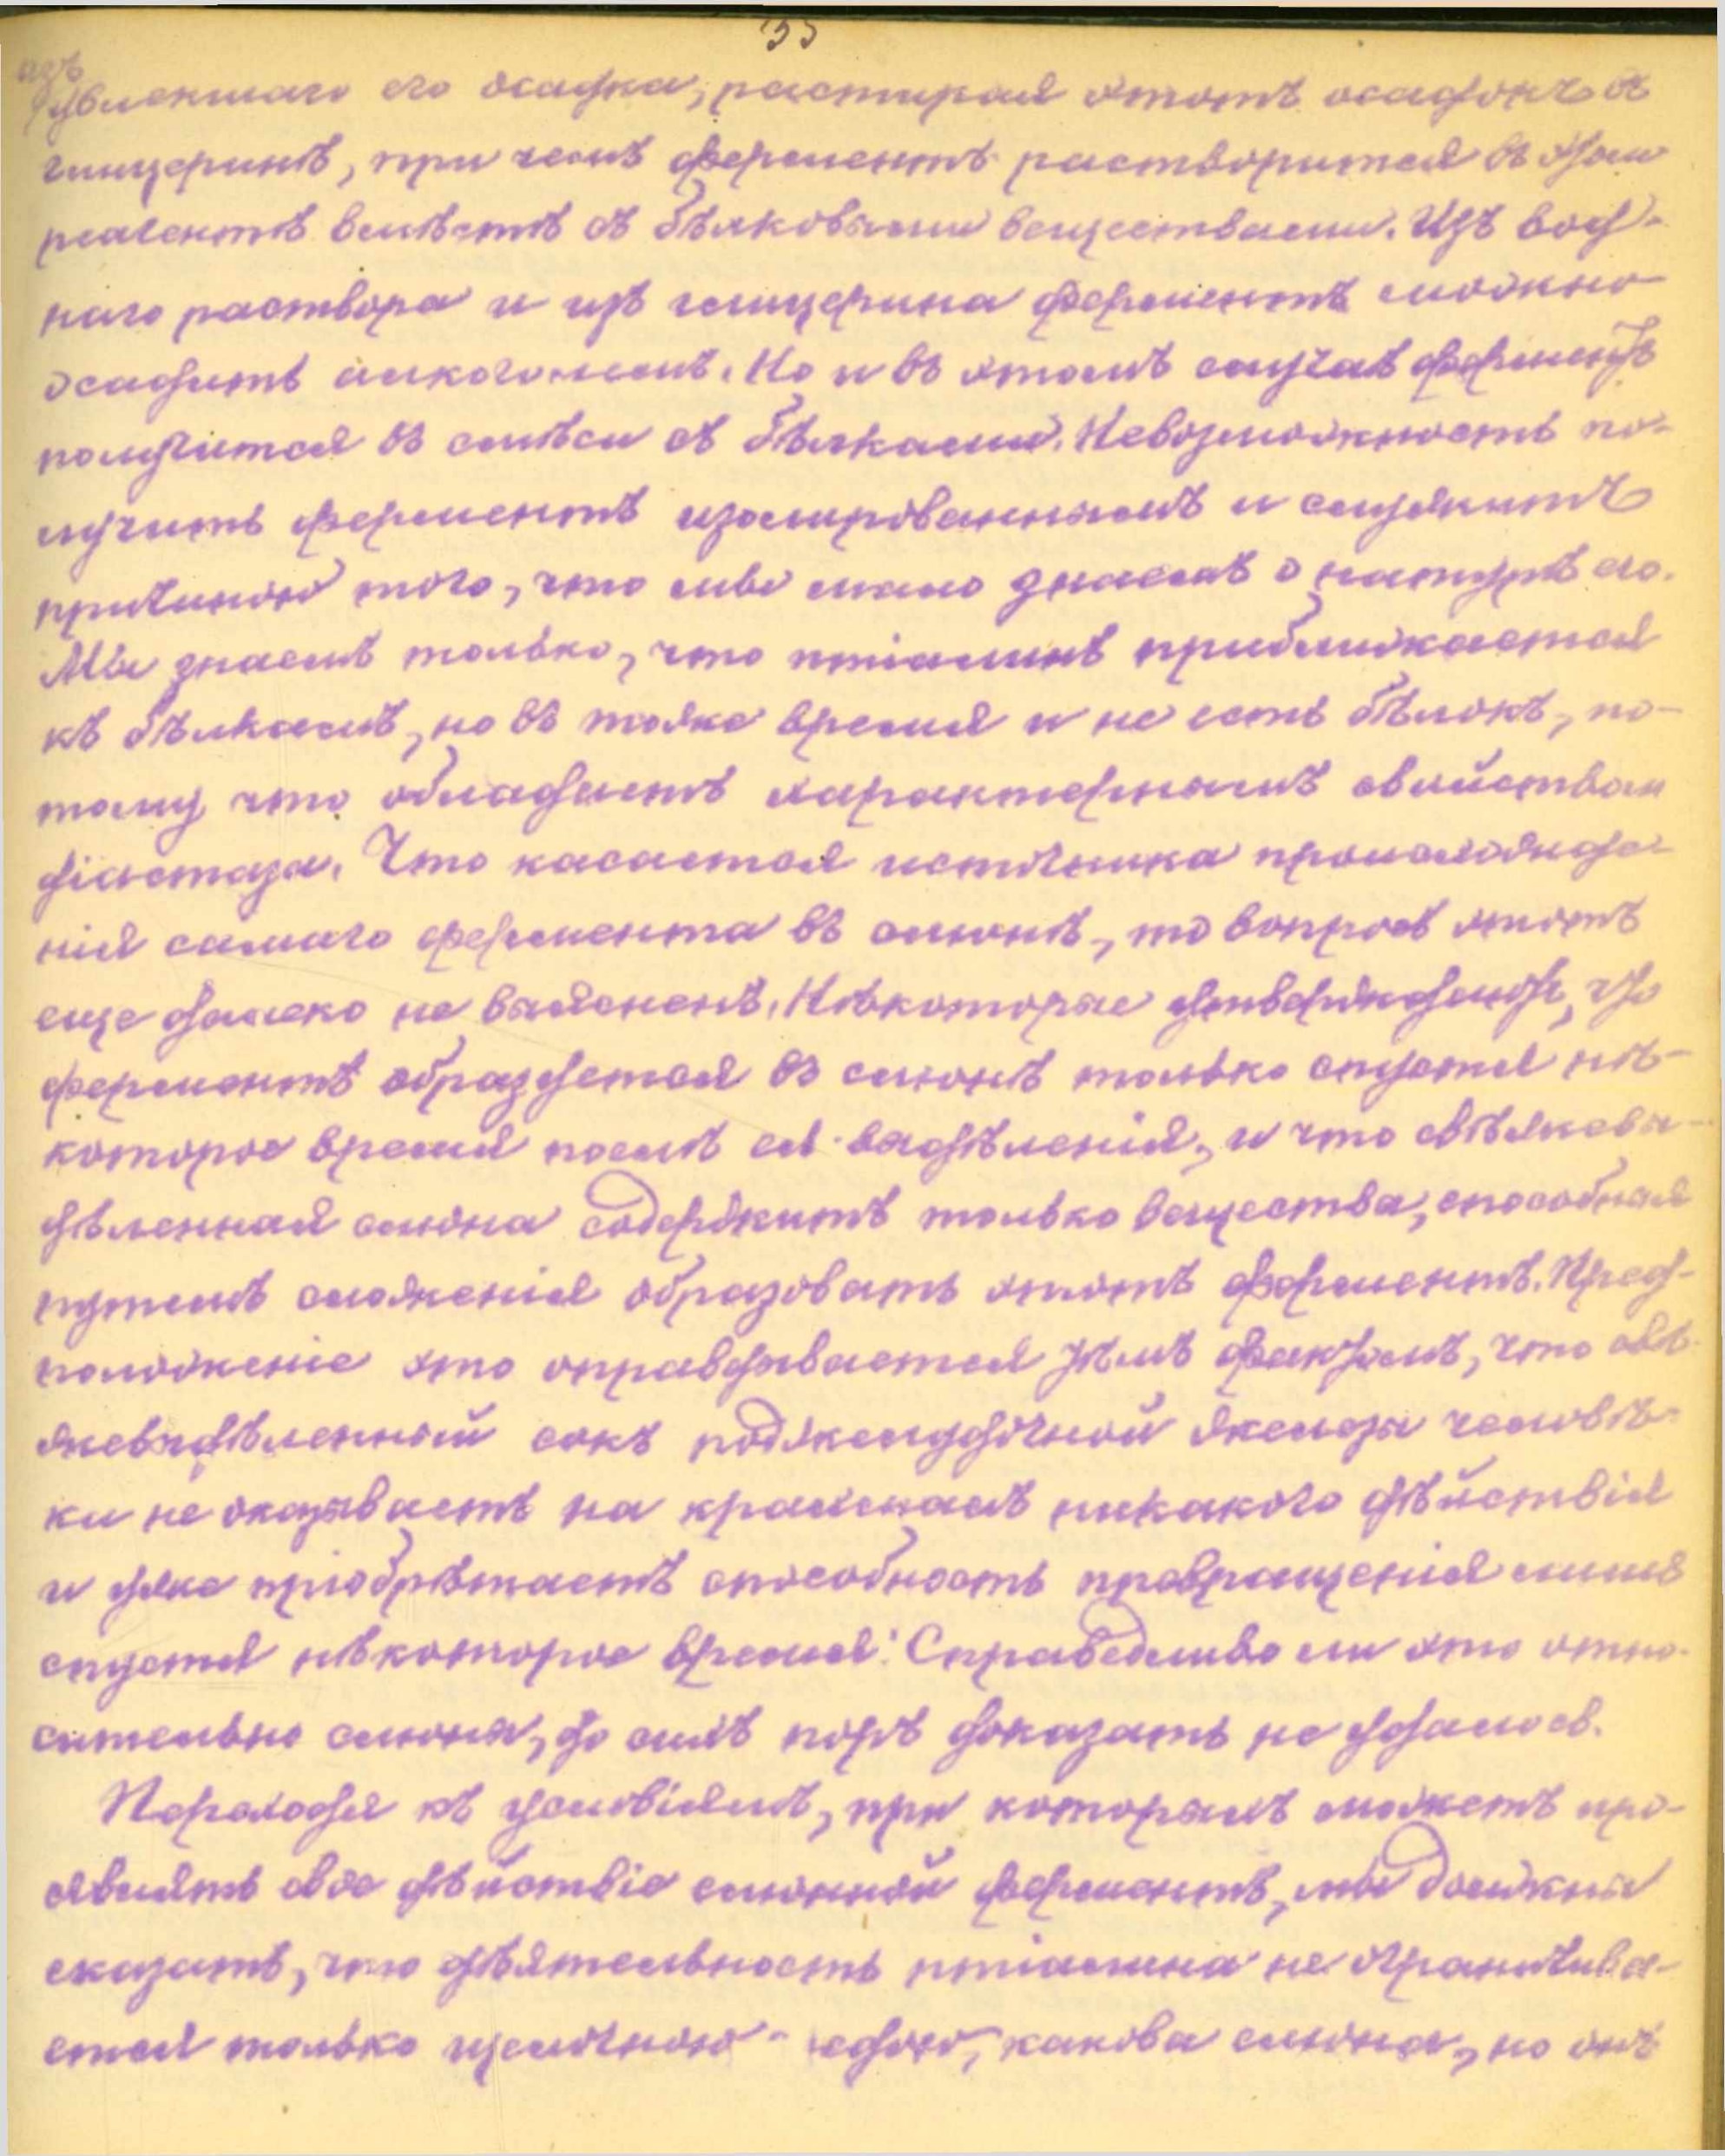 изъ
увлекшаго его осадка, растирая этотъ осадокъ въ
глицеринѣ, при чемъ ферментъ растворится въ этом
реагентѣ вмѣстѣ съ бѣлковыми веществами. Изъ вод-
наго раствора и изъ глицерина ферментъ можно
осадить алкоголемъ. Но и въ этомъ случаѣ ферментъ
получится въ смѣси съ бѣлками. Невозможность по-
лучить ферментъ изолированнымъ и служитъ
причиною того, что мы мало знаемъ о натурѣ его.
Мы знаемъ только, что птіалинъ приближается
къ бѣлкамъ, но въ тоже время и не есть бѣлокъ, по-
тому что обладаетъ характернымъ свойством
діастаза. Что касается источника происхожде-
нія самаго фермента въ слюнѣ, то вопросъ этотъ
еще далеко не выясненъ. Нѣкоторые утверждаютъ, что
ферментъ образуется въ слюнѣ только спустя нѣ-
которое время послѣ ея выдѣленія, и что свѣжевы-
дѣленная слюна содержитъ только вещества, способныя
путемъ сложенія образовать этотъ ферментъ. Пред-
положеніе это оправдывается тѣмъ фактомъ, что свѣ-
жевыдѣленный сокъ поджелудочной железы человѣ-
ки не оказываетъ на крахмалъ никакого дѣйствія
и уже пріобрѣтаетъ способность превращенія лишь
спустя нѣкоторое время. Справедливо ли это отно-
сительно слюны, до сихъ поръ доказать не удалось.
Переходя къ условіямъ, при которыхъ можетъ про-
являть свое дѣйствіе слюнной ферментъ, мы должны
сказать, что дѣятельность птіалина не ограничива-
ется только щелочною средою, какова слюна, но онъ